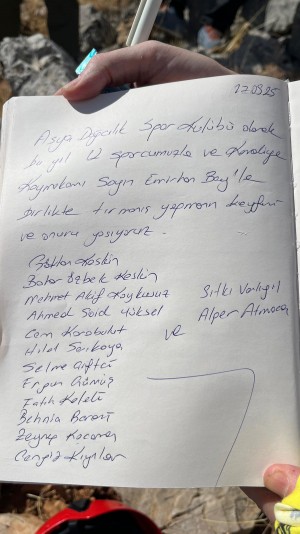 17.09.25
Asya Dağcılık Spor Kulübü olarak
bu yıl 12 sporcumuzla ve
Kaymakamı Sayın Emirhan Bey'le
birlikte tırmanış yapmanın keyfini
ve onuru yaşıyoruz.
Gökhan Keskin
Bahar Özbek Keskin
Mehmet Akif Kuykusuz
Ahmed Said Yüksel
Cem Karabulut
Hilal Sarıkaya
Selma Çiftçi
Ergun Gümüş
Fatih Keleli
Behnia
Zeynep Kocaman
Cengiz
Sıtkı Varlıgil
ve Alper Atmaca